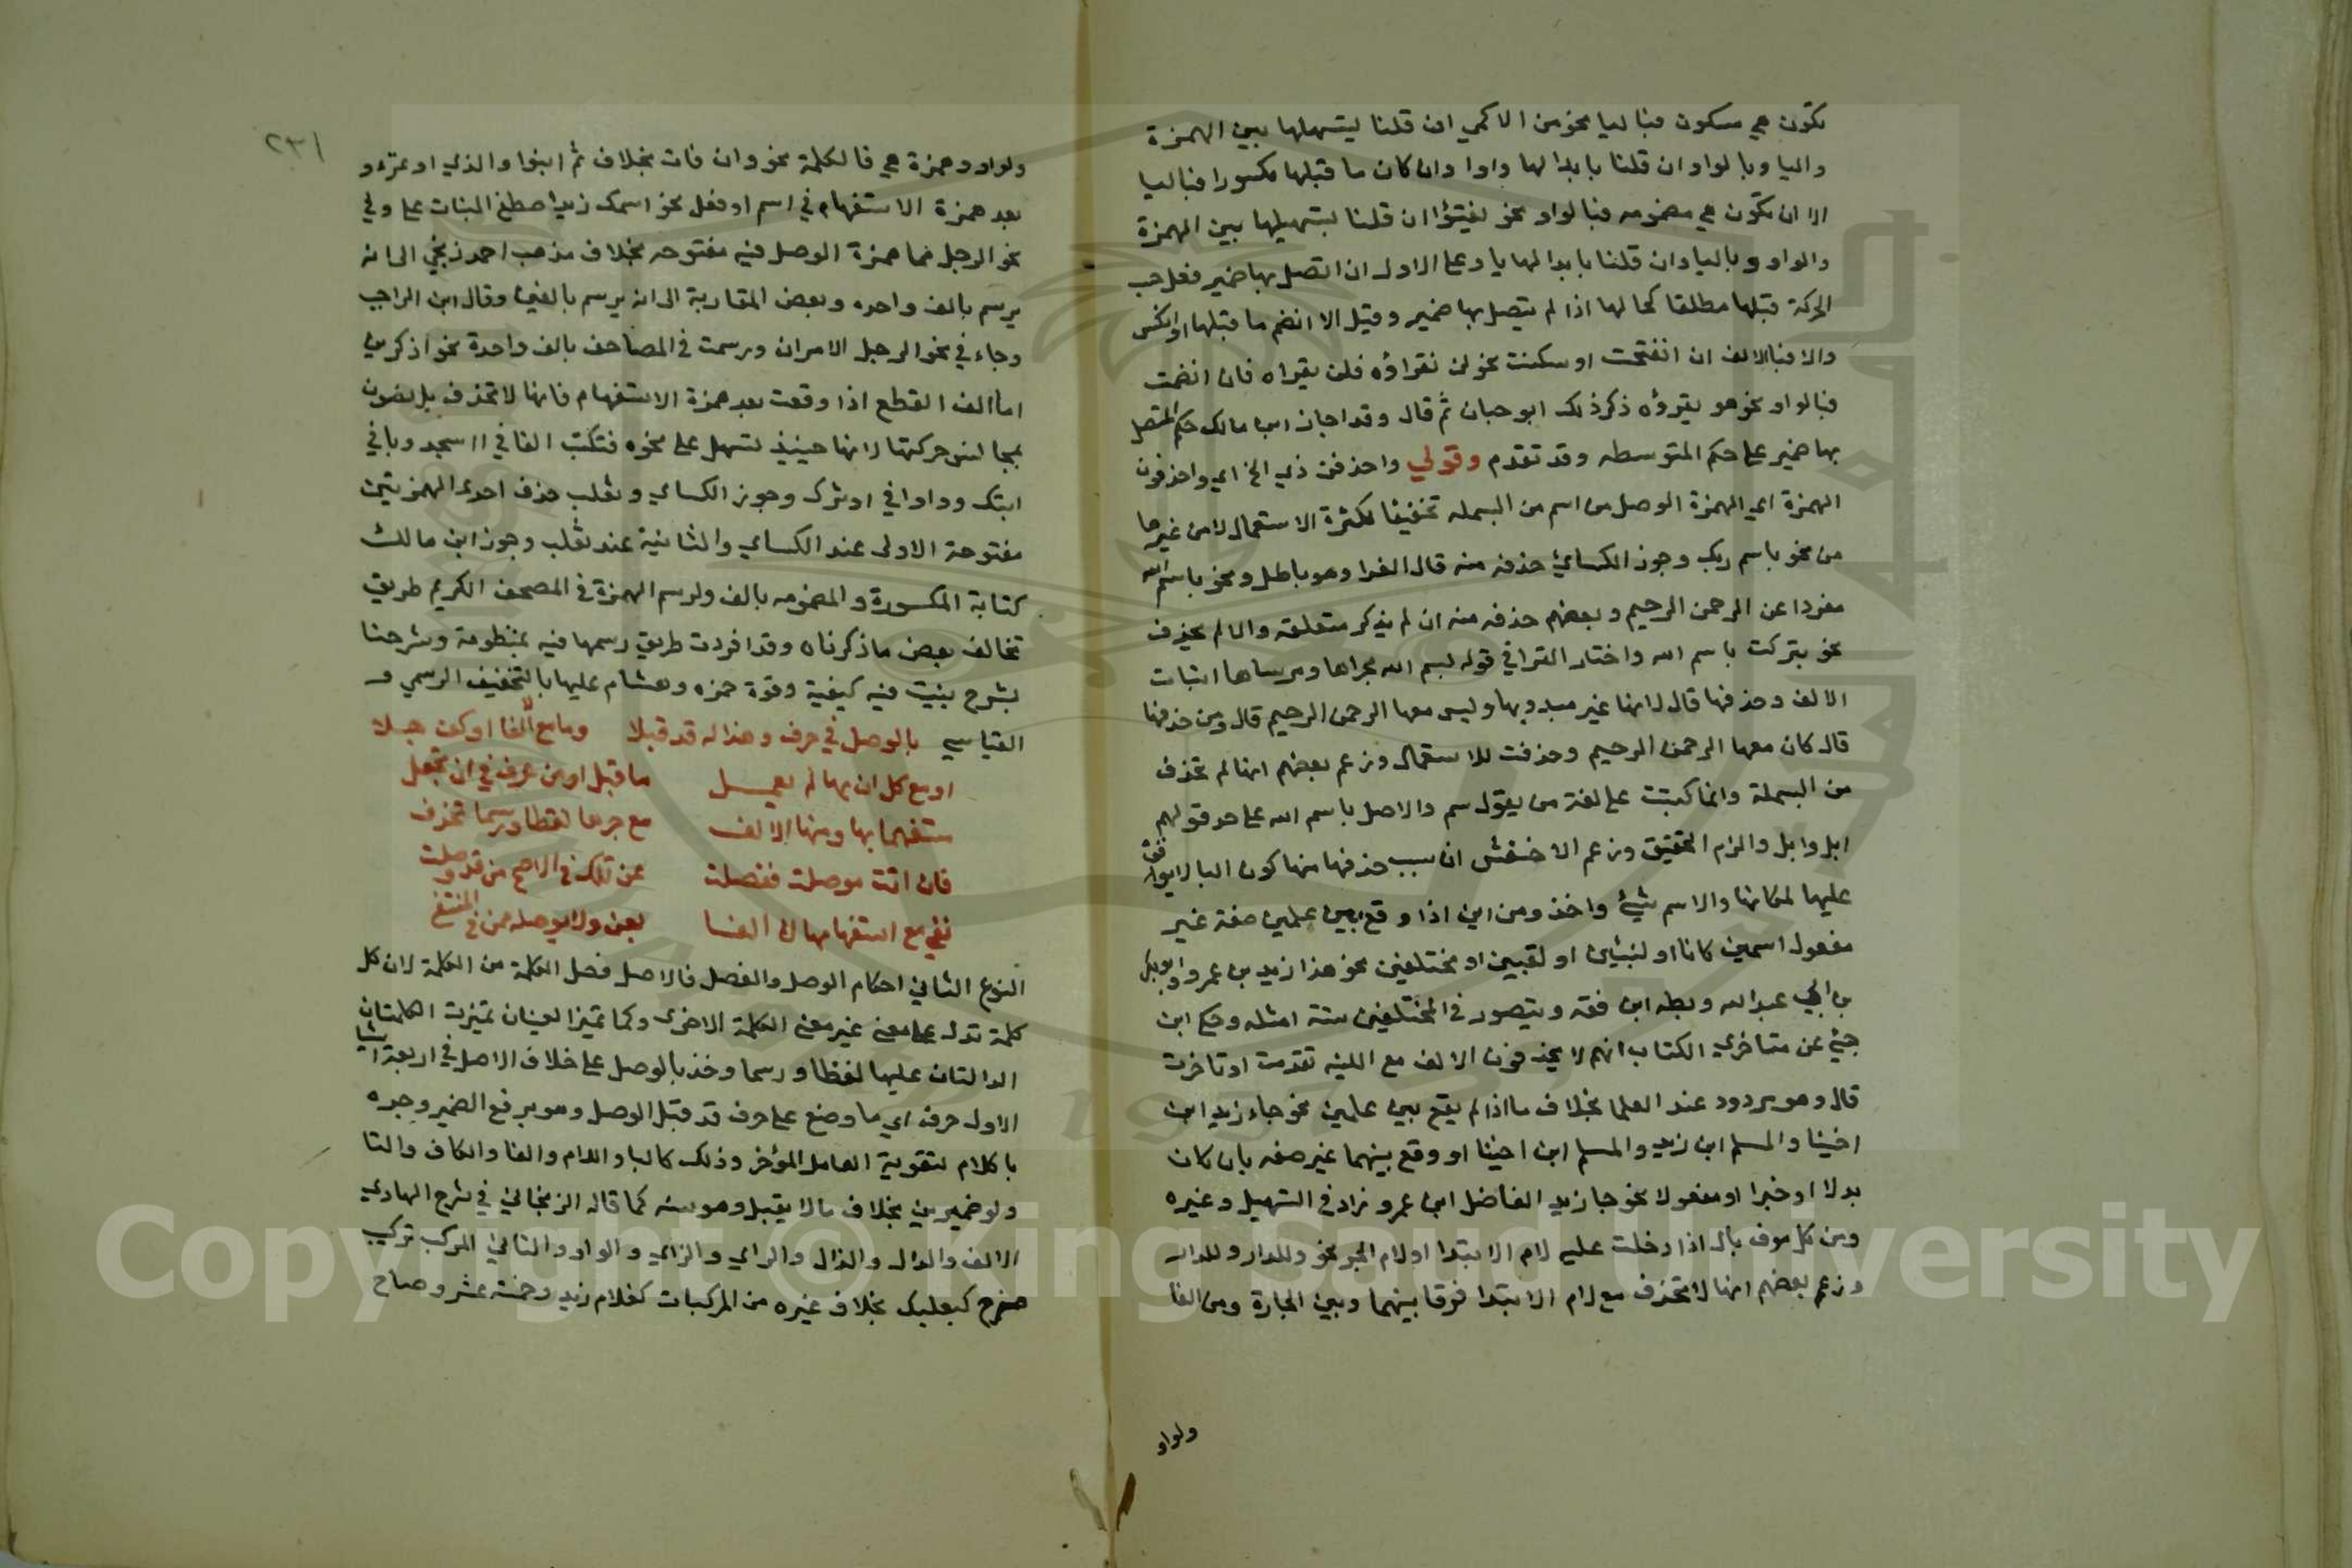 تكون هي مسكون فباليا نحو من الاكمي ان قلنا ليتسهلها بين الهمزة
واليا وبالواو ان قلنا بابدالها واوا وان كان ما قبلها مكسورا فباليا
الا ان تكون هي مضمومه فبالواو نحو لفيتؤا ان قلنا بتسهيلها بين الهمزة
والواو وباليا وان قلنا بابدالها يا وعلى الاول ان اتصل بها ضمير فعل حب
الحركة قبلها مطلقا كحالها اذا لم يتصل بها ضمير وقيل الا انضم ما قبلها او انكس
والا فبالالف ان انفتحت او سكنت نحو لن نقراؤه فلن يقراه فان انضمت
فبالواو نحو هو يقرؤه ذكر ذلك ابو حيان ثم قال وقد اجاز ابن مالك حكم المتصل
بها ضمير على حكم المتوسطه وقد تقدم وقولي واحذفن ذي الخ اي واحذفون
الهمزة اي الهمزة الوصل من اسم من البسمله تخفيفا لكثرة الاستعمال لا من غيرها
من نحو باسم ربك وجوز الكسائي حذفه منه قال الفرا وهو باطل ونحو باسم الله
مفردا عن الرحمن الرحيم وبعضهم حذفه منه ان لم يذكر متعلقه والا لم يحذف
نحو بتركت باسم الله واختار الفرا في قوله بسم الله مجراها ومرساها اثبات
الالف وحذفها قال لانها غير مبدو بها وليس معها الرحمن الرحيم قال ومن حذفها
قال كان معها الرحمن الرحيم وحذفت للاستعمال وزعم بعضهم انها لم تحذف
من البسملة وانما كتبت على لغة من يقول سم والاصل باسم الله على حد قولهم
ابل وابل والزم التحقيق وزعم الاخفش ان سبب حذفها منها كون البا لايوقف
عليها لمكانها والاسم شيئ واخذ ومن ابن اذا وقع بين علمين صفة غير
مفعول اسمين كانا او كنيتين او لقبين او مختلفين نحو هذا زيد بن عمرو وابوبكر
بن ابي عبدالله وبطه ابن فقه ويتصور في المختلفين ستة امثله وحكم ابن
جني عن متاخري الكتاب انهم لا يحذفون الالف مع الكنيه تقدمت او تاخرت
قال وهو مردود عند العلما بخلاف ما اذا لم يقع بين علمين نحو جاء زيد ابن
اخينا والمسلم ابن زيد والمسلم ابن اخينا او وقع بينهما غير صفه بان كان
بدلا او خبرا او مفعولا نحو جا زيد الفاضل ابن عمرو زاد في التسهيل وغيره
ومن كل معرف بال اذا دخلت عليه لام الابتدا او لام الجر نحو وللدار وللدار
وزعم بعضهم انها لا تحذف مع لام الابتدا فرقا بينهما وبين الجارة ومن الفا
ولواو
٢٣١
ولواو وهمزة هي فا لكلمة نحو وان فات بخلاف ثم ابنوا والذي اوتمن و
بعد همزة الاستفهام في اسم او فعل نحو اسمك زيد اصطفى البنات على وفي
نحو الرجل مما همزة الوصل فيه مفتوحه بخلاف مذهب احمد زنجي الى انه
يرسم بالف واحده وبعض المغاربة الى انه يرسم بالفين وقال ابن الحاجب
وجاء في نحو الرجل الامران ورسمت في المصاحف بالف واحدة نحو اذكرين
اما الف القطع اذا وقعت بعد همزة الاستفهام فانها لا تحذف بل تصون
بمجانس حركتها لانها حينئذ تسهل على نحوه فتكتب الفا في ااسجد وبا في
ابتك وواوا في اونزل وجوز الكساي وثعلب حذف احدى الهمزتين
مفتوحة الاولى عند الكساي والثانية عند ثعلب وجوز ابن مالك
كتابة المكسورة والمضمومه بالف ولرسم الهمزة في المصحف الكريم طريق
تخالف بعض ما ذكرناه وقد افردت طريق رسمها فيه بمنظومة وشرحنا
بشرح بينت فيه كيفية وقوة حمزه وهشام عليها بالتخفيف الرسمي و
القياسي بالوصل في حرف وهذا له قد قبلا وما مع الفا او كف جملا
او مع كل ان بها لم يعمل ما قبل او من عرف في ان تجعل
مستفهما بها ومنها الالف مع جرها لفظا ورسما تحذف
فان اتت موصلة ففصلت عن تلك في الاصح من قد وصلت
نفي مع استفهامها لن الفا بعن ولا يوصله من في المنتقى
النوع الثاني احكام الوصل والفصل فالاصل فصل الكلمة من الكلمة لان كل
كلمة تدل على معنى غير معنى الكلمة الاخرى وكما تميز المعينان تميزت الكلمتان
الدالتان عليها لفظا ورسما وخذ بالوصل على خلاف الاصل في اربعة اشيا
الاول حرف اي ما وضع على حرف قد قبل الوصل وهو برفع الضمير وجره
با كلام لتقوية العامل المؤخر وذلك كالبا واللام والفا والكاف والتا
ولو ضميرين بخلاف ما لا يقبل وهو سته كما قاله الزنجاني في شرح الهادي
الالف والدال والذال والراي والزاي والواو والثاني المركب تركيب
مزج كبعلبك بخلاف غيره من المركبات كغلام زيد وخمسة عشر وصباح
Copyright © King Saud University